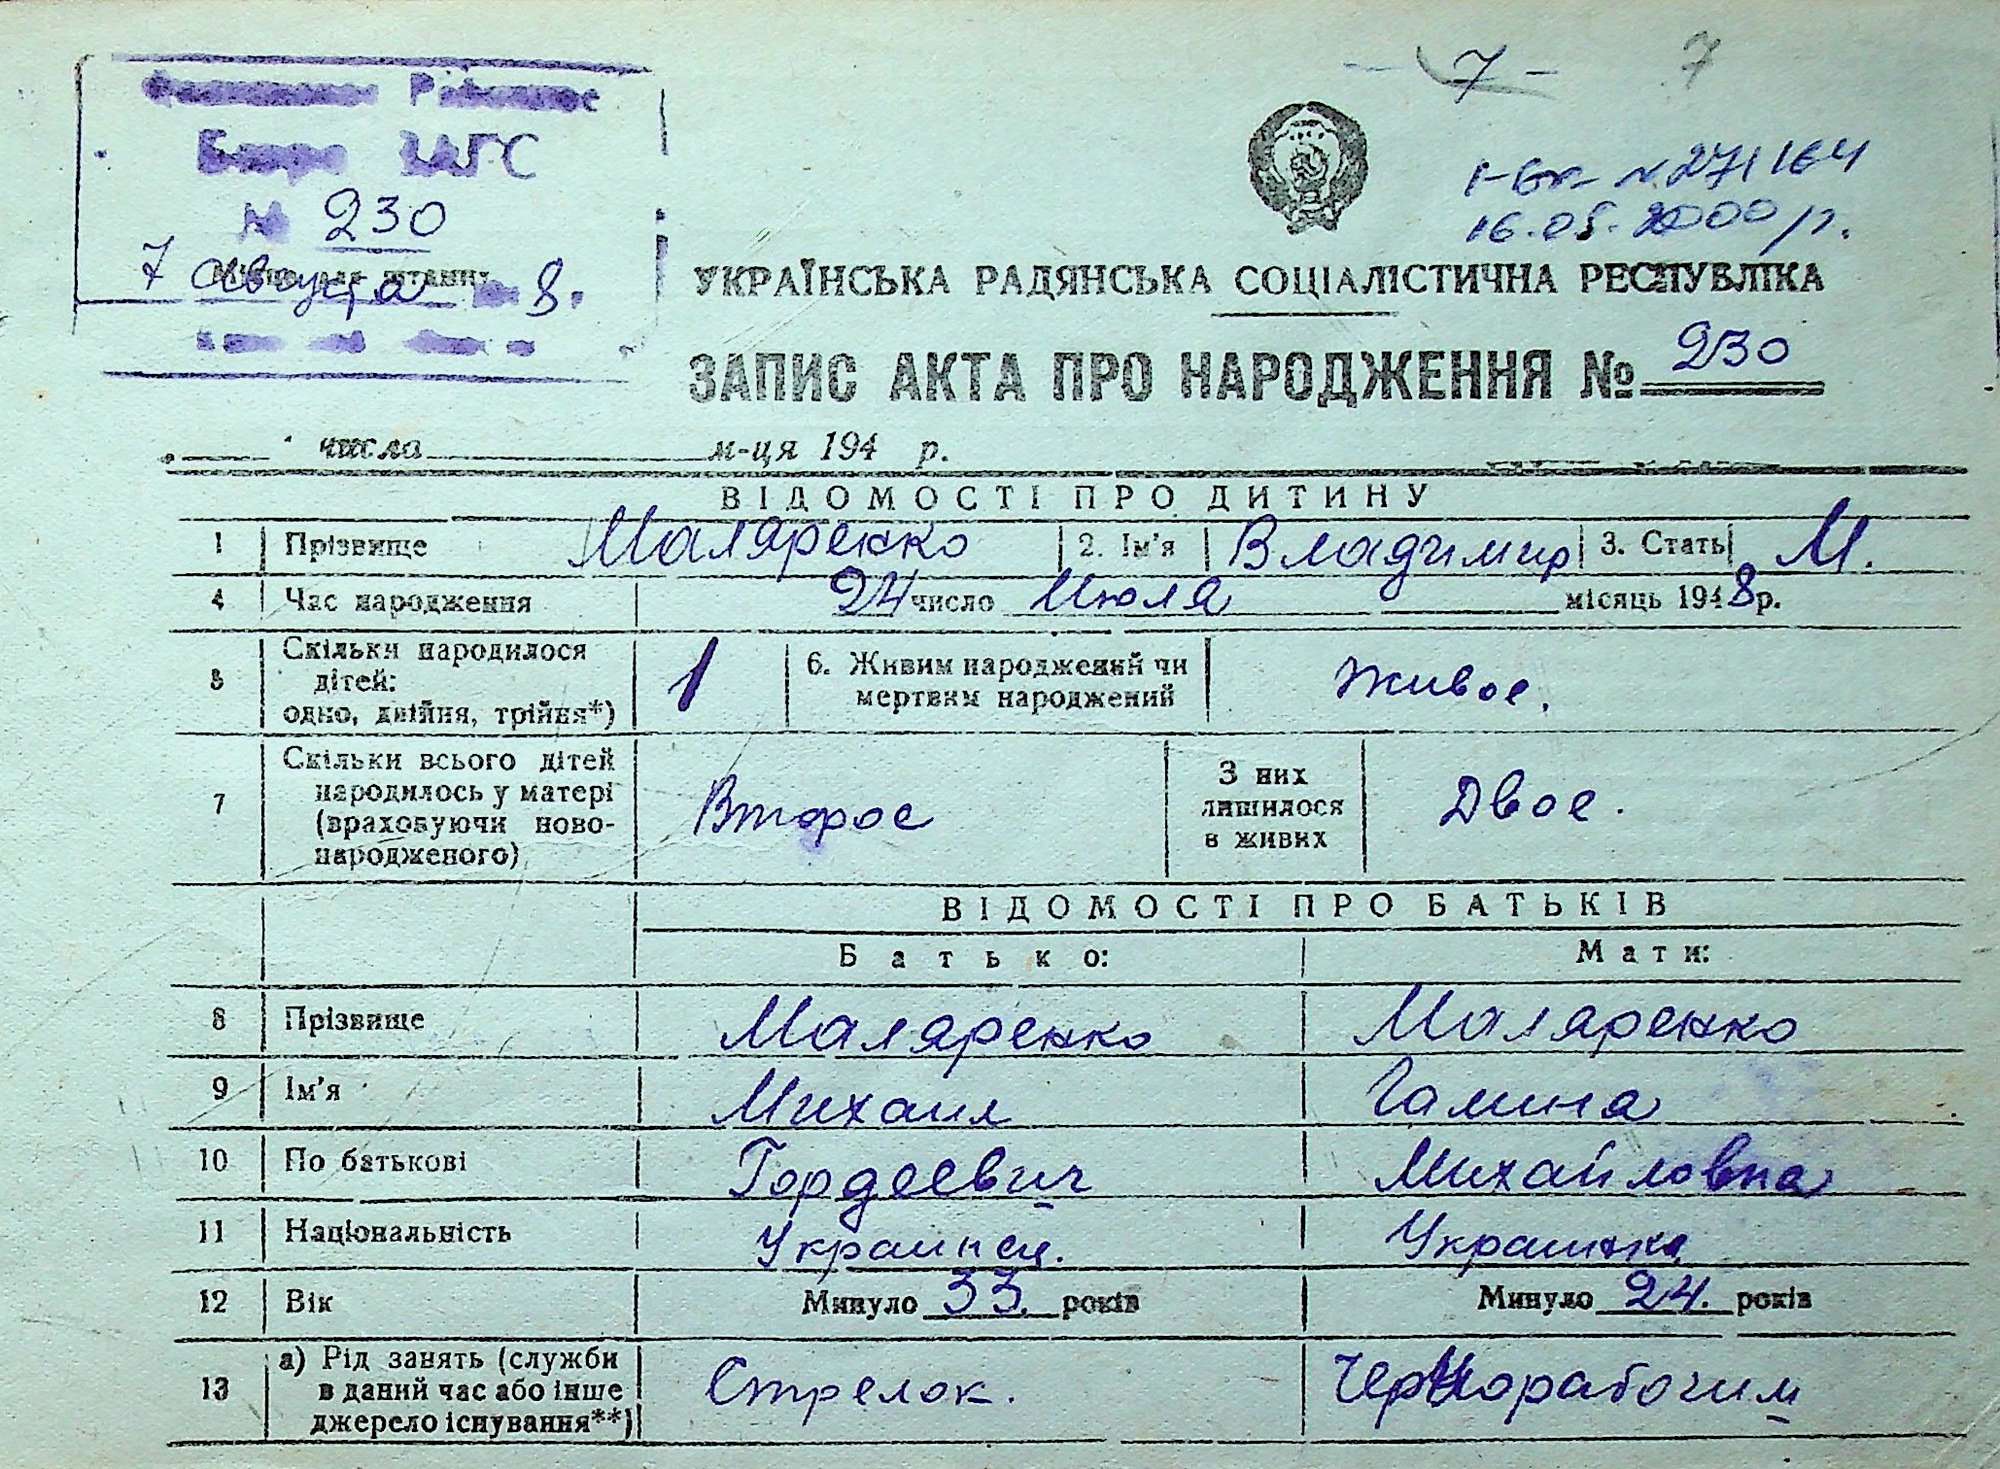 - 7 - 7
Районное
Бюро ЗАГС
№ 230
7 августа 8.
1-БК N 271164
16.05.2000 р.
УКРАЇНСЬКА РАДЯНСЬКА СОЦІАЛІСТИЧНА РЕСПУБЛІКА
ЗАПИС АКТА ПРО НАРОДЖЕННЯ № 230
числа м-ця 194 р.
ВІДОМОСТІ ПРО ДИТИНУ
1 Прізвище Маляренко 2. Ім'я Владимир 3. Стать М.
4 Час народження 24 число Июля місяць 1948 р.
5 Скільки народилося дітей: одно, двійня, трійня*) 1 6. Живим народжений чи мертвим народжений Живое.
7 Скільки всього дітей народилось у матері (враховуючи новонародженого) Второе З них лишилося в живих Двое.
ВІДОМОСТІ ПРО БАТЬКІВ
Батько: Мати:
8 Прізвище Маляренко Маляренко
9 Ім'я Михаил Галина
10 По батькові Гордеевич Михайловна
11 Національність Украинец. Украинка
12 Вік Минуло 33. років Минуло 24. років
13 а) Рід занять (служби в даний час або інше джерело існування**) Стрелок. Чернорабочим